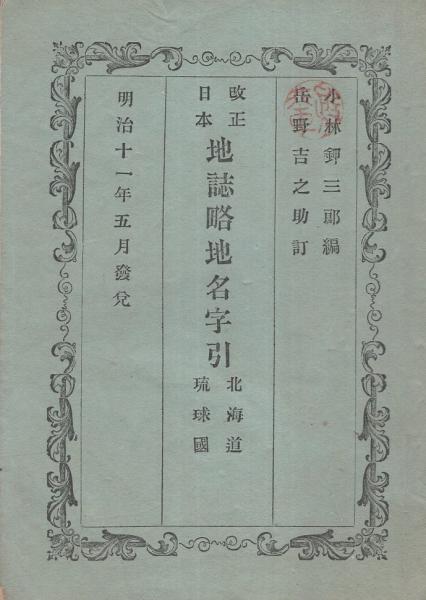 小林鉀三郎編
岳野吉之助訂
改正
日本
地誌略地名字引
北海道
琉球國
明治十一年五月發兌